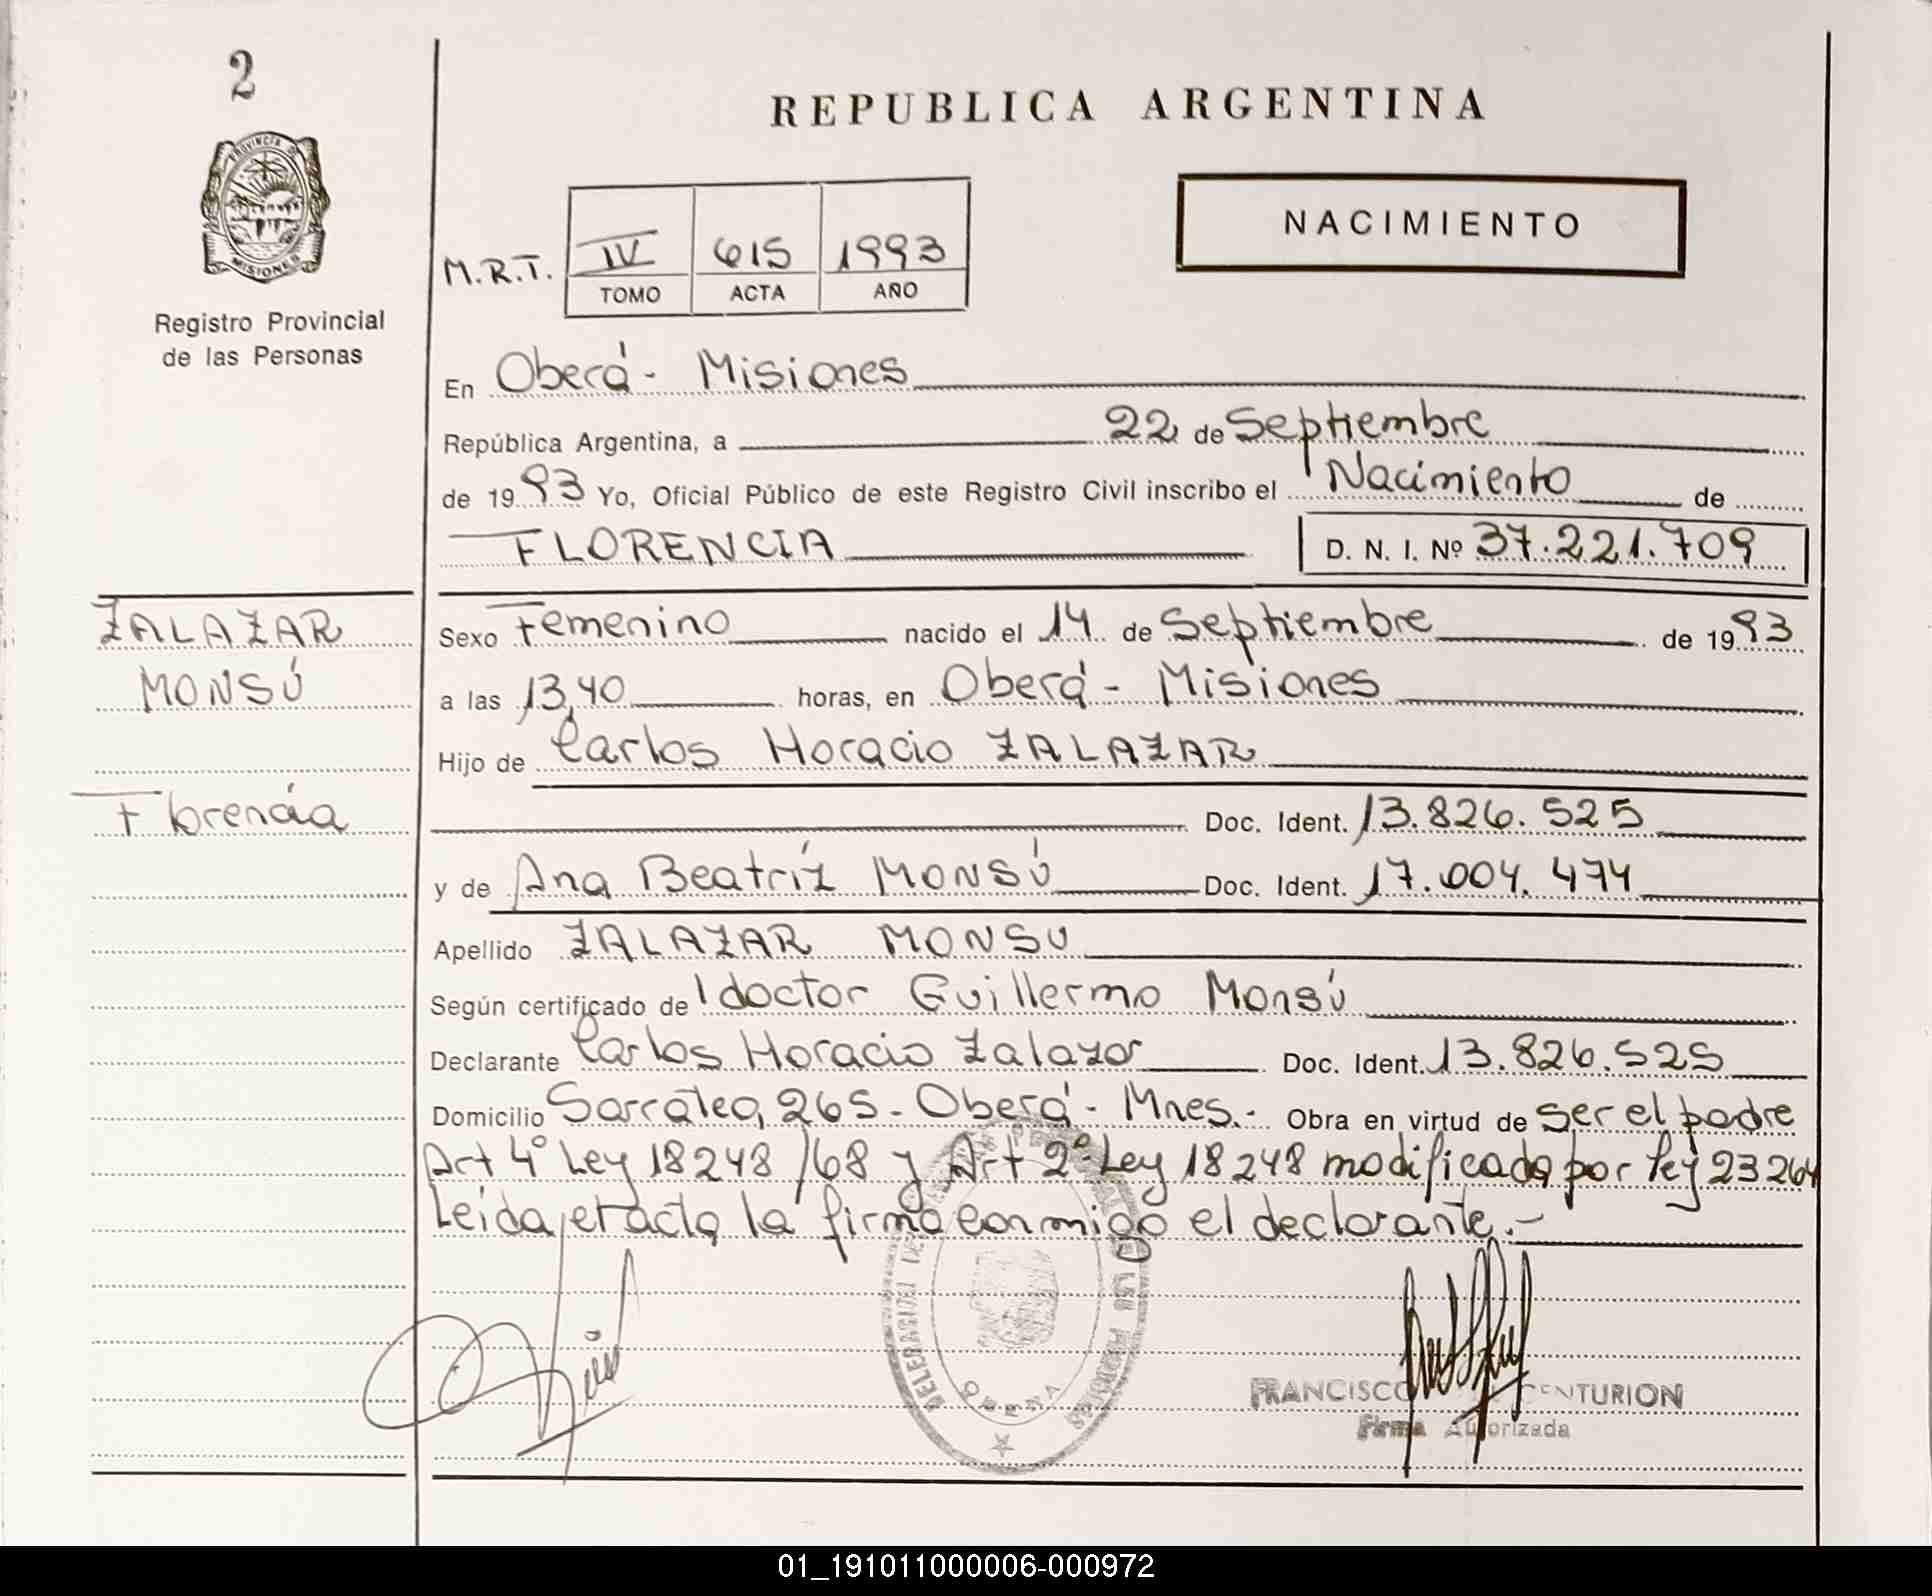 2
REPUBLICA ARGENTINA
PROVINCIA DE
MISIONES
NACIMIENTO
M.R.T. IV 615 1993
TOMO ACTA AÑO
Registro Provincial
de las Personas
En Oberá - Misiones
República Argentina, a 22 de Septiembre
de 1993 Yo, Oficial Público de este Registro Civil inscribo el Nacimiento de
FLORENCIA D. N. I. Nº 37.221.709
ZALAZAR
MONSÚ
Florencia
Sexo Femenino nacido el 14 de Septiembre de 1993
a las 13,40 horas, en Oberá - Misiones
Hijo de Carlos Horacio ZALAZAR
Doc. Ident. 13.826.525
y de Ana Beatríz MONSÚ Doc. Ident. 17.004.474
Apellido ZALAZAR MONSU
Según certificado de l doctor Guillermo Monsú
Declarante Carlos Horacio Zalazar Doc. Ident. 13.826.525
Domicilio Sarratea, 265 - Oberá - Mnes.- Obra en virtud de ser el padre
Art 4º Ley 18248/68 y Art 2º Ley 18248 modificada por ley 23264
Leída el acta la firma conmigo el declarante.-
OBERA
FRANCISCO CENTURION
Firma Autorizada
01_191011000006-000972